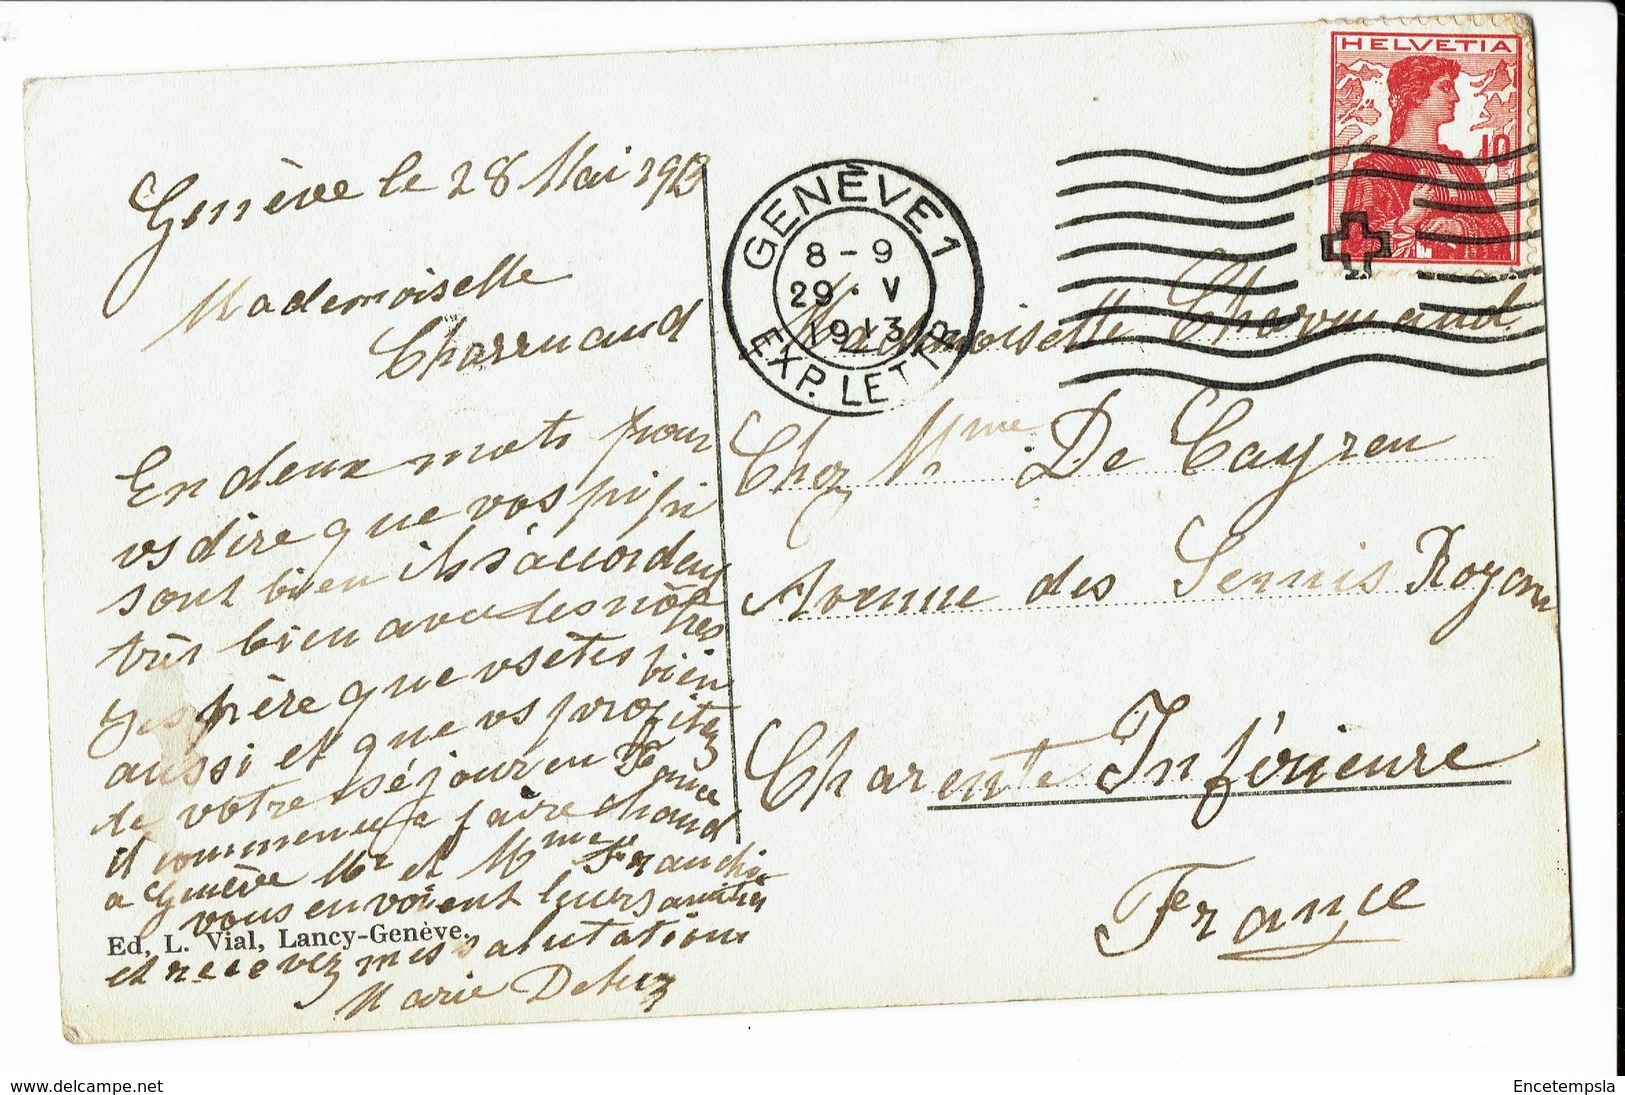 Genève le 28 Mai 1913
Mademoiselle
Charruaud
En deux mots pour
vs dire que vos pipi
sont bien ils s'accordent
très bien avec les nôtres
J'espère que vs êtes bien
aussi et que vs profitez
de votre séjour en France
il commence a faire chaud
a Genève Mr et Mme
vous envoient leurs amitiés
et recevez mes salutations
Marie
Ed, L. Vial, Lancy-Genève.
HELVETIA
10
GENÈVE 1
8-9
29·V
1913
EXP. LETTR
Mademoiselle Charruaud
Chez Mme De Cayreu
Avenue des Semis Royan
Charente Inférieure
France
delcampe.net
Encetempsla